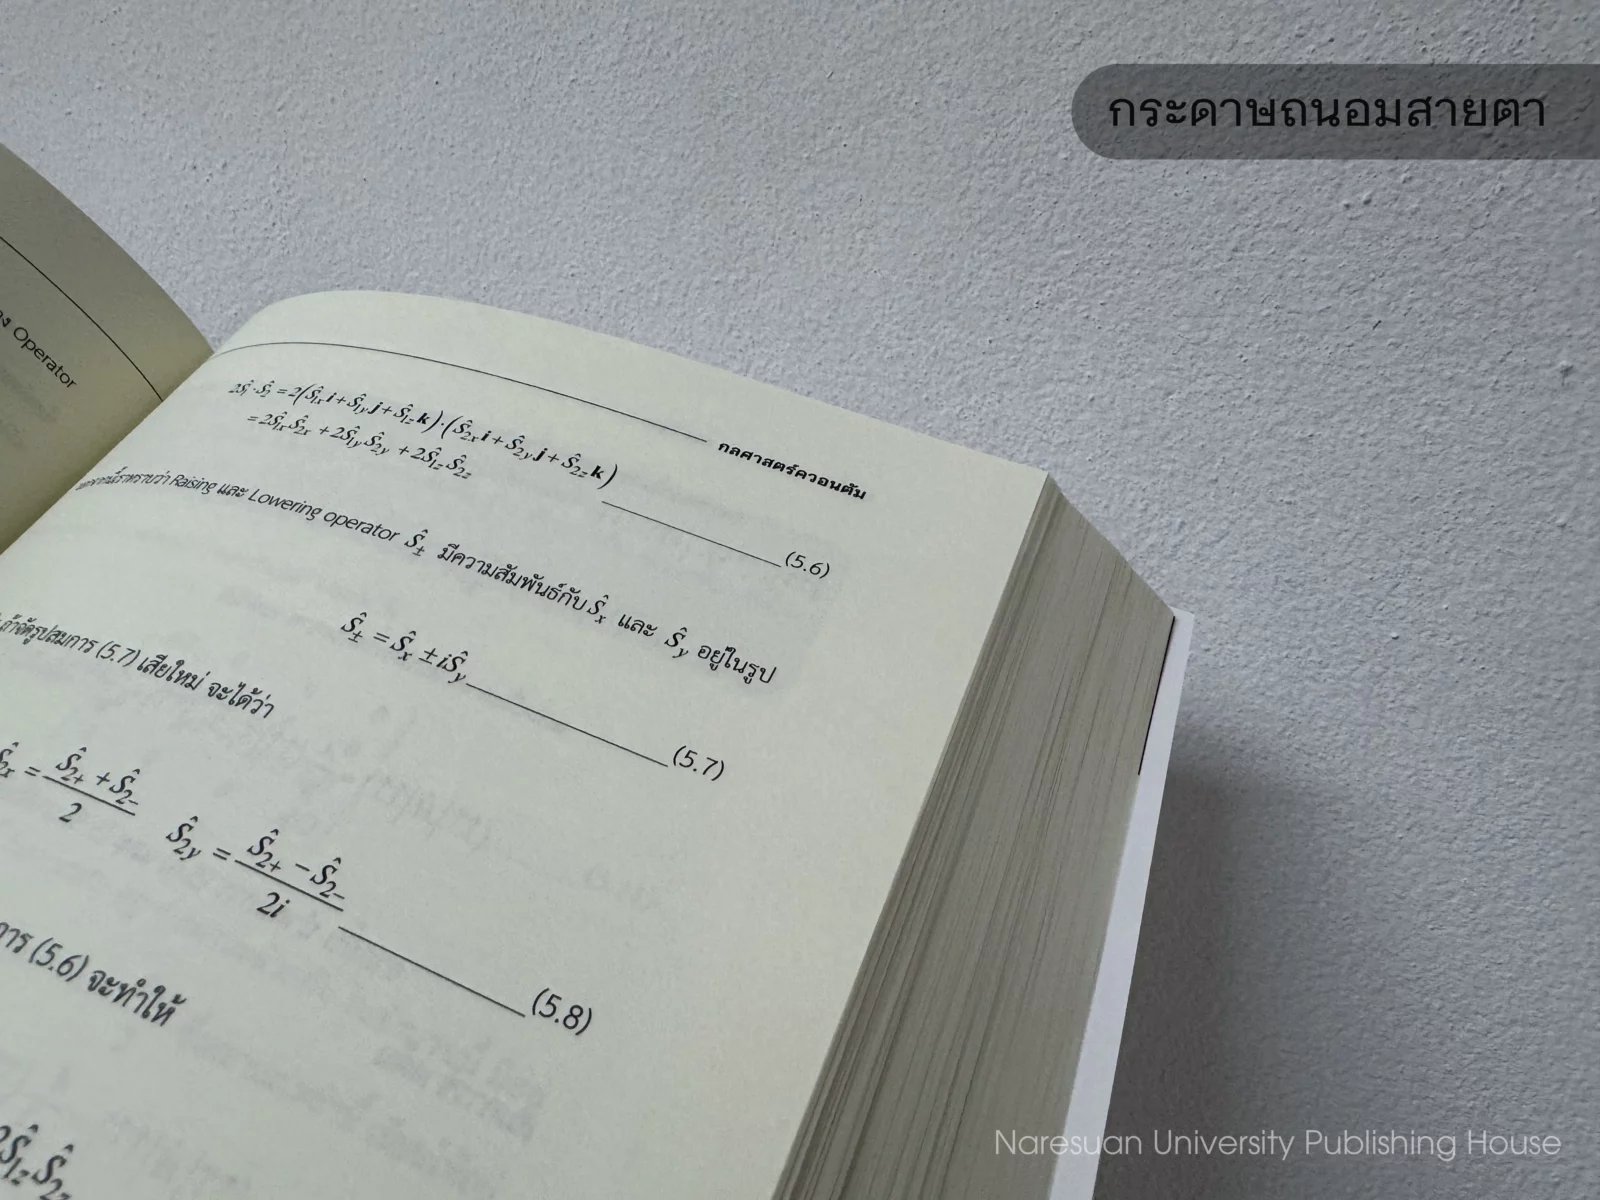 กระดาษถนอมสายตา
Operator
กลศาสตร์ควอนตัม
2Ŝ₁·Ŝ₂ = 2(Ŝ₁ₓi+Ŝ₁ᵧj+Ŝ₁zk)·(Ŝ₂ₓi+Ŝ₂ᵧj+Ŝ₂zk)
= 2Ŝ₁ₓŜ₂ₓ + 2Ŝ₁ᵧŜ₂ᵧ + 2Ŝ₁zŜ₂z
(5.6)
ราทราบว่า Raising และ Lowering operator Ŝ± มีความสัมพันธ์กับ Ŝₓ และ Ŝᵧ อยู่ในรูป
Ŝ± = Ŝₓ ± iŜᵧ (5.7)
ถ้าจัดรูปสมการ (5.7) เสียใหม่ จะได้ว่า
Ŝ₂ₓ = (Ŝ₂₊ + Ŝ₂₋)/2 Ŝ₂ᵧ = (Ŝ₂₊ − Ŝ₂₋)/2i (5.8)
การ (5.6) จะทำให้
Ŝ₁zŜ₂z
Naresuan University Publishing House